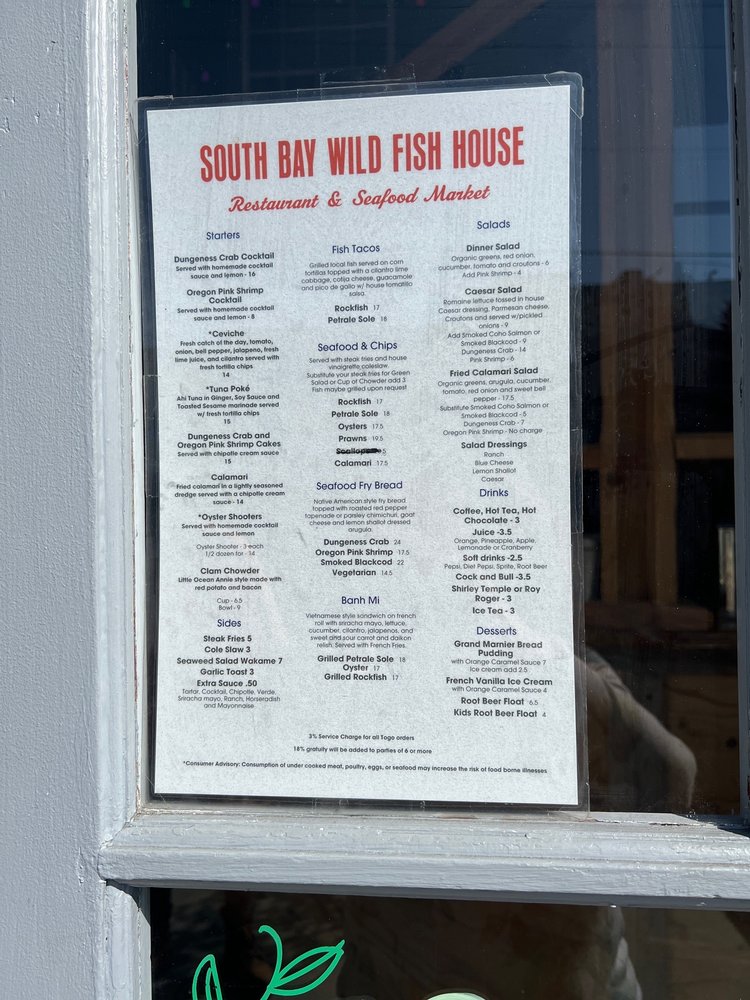 SOUTH BAY WILD FISH HOUSE
Restaurant & Seafood Market
Starters
Dungeness Crab Cocktail
Served with homemade cocktail
sauce and lemon - 16
Oregon Pink Shrimp
Cocktail
Served with homemade cocktail
sauce and lemon - 8
*Ceviche
Fresh catch of the day, tomato,
onion, bell pepper, jalapeno, fresh
lime juice, and cilantro served with
fresh tortilla chips
14
*Tuna Poké
Ahi Tuna in Ginger, Soy Sauce and
Toasted Sesame marinade served
w/ fresh tortilla chips
15
Dungeness Crab and
Oregon Pink Shrimp Cakes
Served with chipotle cream sauce
15
Calamari
Fried calamari in a lightly seasoned
dredge served with a chipotle cream
sauce - 14
*Oyster Shooters
Served with homemade cocktail
sauce and lemon
Oyster Shooter - 3 each
1/2 dozen for - 14
Clam Chowder
Little Ocean Annie style made with
red potato and bacon
Cup - 6.5
Bowl - 9
Sides
Steak Fries 5
Cole Slaw 3
Seaweed Salad Wakame 7
Garlic Toast 3
Extra Sauce .50
Tartar, Cocktail, Chipotle, Verde,
Sriracha mayo, Ranch, Horseradish
and Mayonnaise
Fish Tacos
Grilled local fish served on corn
tortillas topped with a cilantro lime
cabbage, cotija cheese, guacamole
and pico de gallo w/ house tomatillo
salsa.
Rockfish 17
Petrale Sole 18
Seafood & Chips
Served with steak fries and house
vinaigrette coleslaw.
Substitute your steak fries for Green
Salad or Cup of Chowder add 3
Fish maybe grilled upon request
Rockfish 17
Petrale Sole 18
Oysters 17.5
Prawns 19.5
Calamari 17.5
Seafood Fry Bread
Native American style fry bread
topped with roasted red pepper
tapenade or parsley chimichuri, goat
cheese and lemon shallot dressed
arugula.
Dungeness Crab 24
Oregon Pink Shrimp 17.5
Smoked Blackcod 22
Vegetarian 14.5
Banh Mi
Vietnamese style sandwich on french
roll with sriracha mayo, lettuce,
cucumber, cilantro, jalapenos, and
sweet and sour carrot and daikon
relish. Served with French Fries.
Grilled Petrale Sole 18
Oyster 17
Grilled Rockfish 17
Salads
Dinner Salad
Organic greens, red onion,
cucumber, tomato and croutons - 6
Add Pink Shrimp - 4
Caesar Salad
Romaine lettuce tossed in house
Caesar dressing, Parmesan cheese,
Croutons and served w/pickled
onions - 9
Add Smoked Coho Salmon or
Smoked Blackcod - 9
Dungeness Crab - 14
Pink Shrimp - 6
Fried Calamari Salad
Organic greens, arugula, cucumber,
tomato, red onion and sweet bell
pepper - 17.5
Substitute Smoked Coho Salmon or
Smoked Blackcod - 5
Dungeness Crab - 7
Oregon Pink Shrimp - No charge
Salad Dressings
Ranch
Blue Cheese
Lemon Shallot
Caesar
Drinks
Coffee, Hot Tea, Hot
Chocolate - 3
Juice -3.5
Orange, Pineapple, Apple,
Lemonade or Cranberry
Soft drinks -2.5
Pepsi, Diet Pepsi, Sprite, Root Beer
Cock and Bull -3.5
Shirley Temple or Roy
Roger - 3
Ice Tea - 3
Desserts
Grand Marnier Bread
Pudding
with Orange Caramel Sauce 7
Ice cream add 2.5
French Vanilla Ice Cream
with Orange Caramel Sauce 4
Root Beer Float 6.5
Kids Root Beer Float 4
3% Service Charge for all Togo orders
18% gratuity will be added to parties of 6 or more
*Consumer Advisory: Consumption of under cooked meat, poultry, eggs, or seafood may increase the risk of food borne illnesses